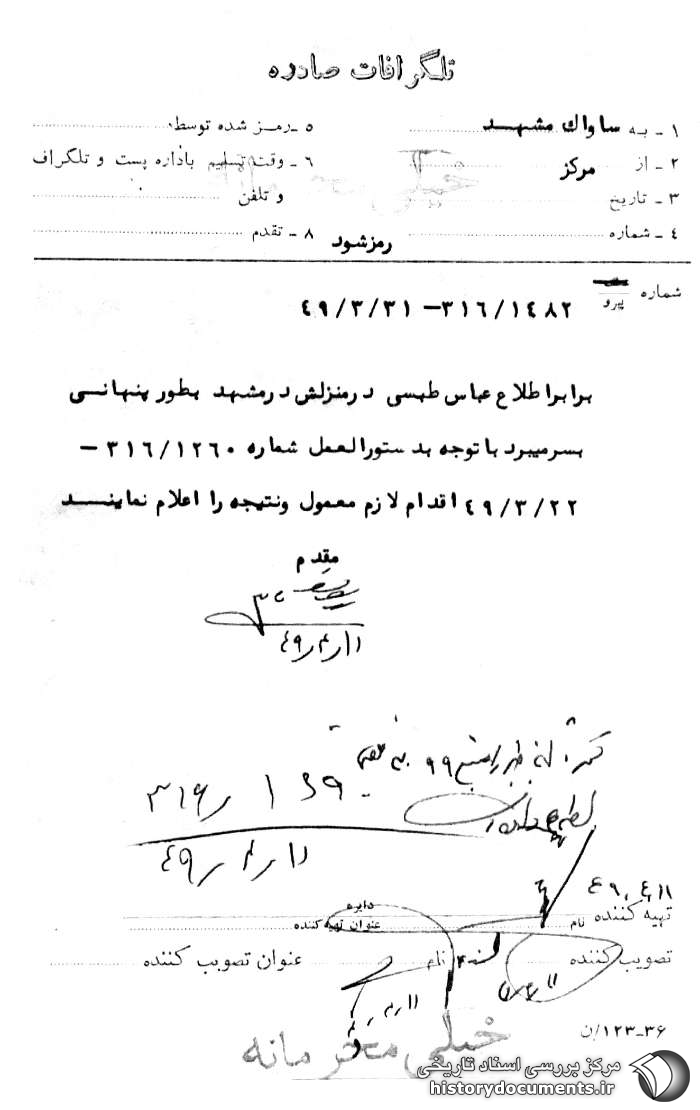 تلگرافات صادره
۱ - به ساواک مشهد
۲ - از مرکز
۳ - تاریخ
۴ - شماره
۵ - رمز شده توسط
۶ - وقت تسلیم باداره پست و تلگراف
و تلفن
۸ - تقدم
رمزشود
شماره
پیرو
۳۱۶/۱۴۸۲ - ۴۹/۳/۳۱
برابر اطلاع عباس طبسی در منزلش در مشهد بطور پنهانی
بسر میبرد با توجه بدستورالعمل شماره ۳۱۶/۱۲۶۰ -
۴۹/۳/۲۲ اقدام لازم معمول ونتیجه را اعلام نمایند
مقدم
۴۹/۴/۱
۳۱۶/
۴۹/۴/۱
۴۹/۴/۱
تهیه کننده
نام
دایره
عنوان تهیه کننده
تصویب کننده
نام
عنوان تصویب کننده
خیلی محرمانه
۳۶-۱۲۳/ن
مرکز بررسی اسناد تاریخی
historydocuments.ir